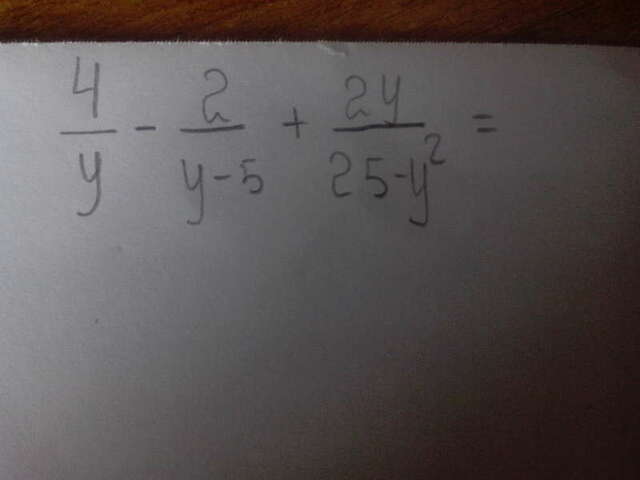 4/y - 2/(y-5) + 2y/(25-y²) =